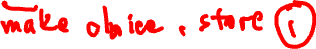 make choice, store ①